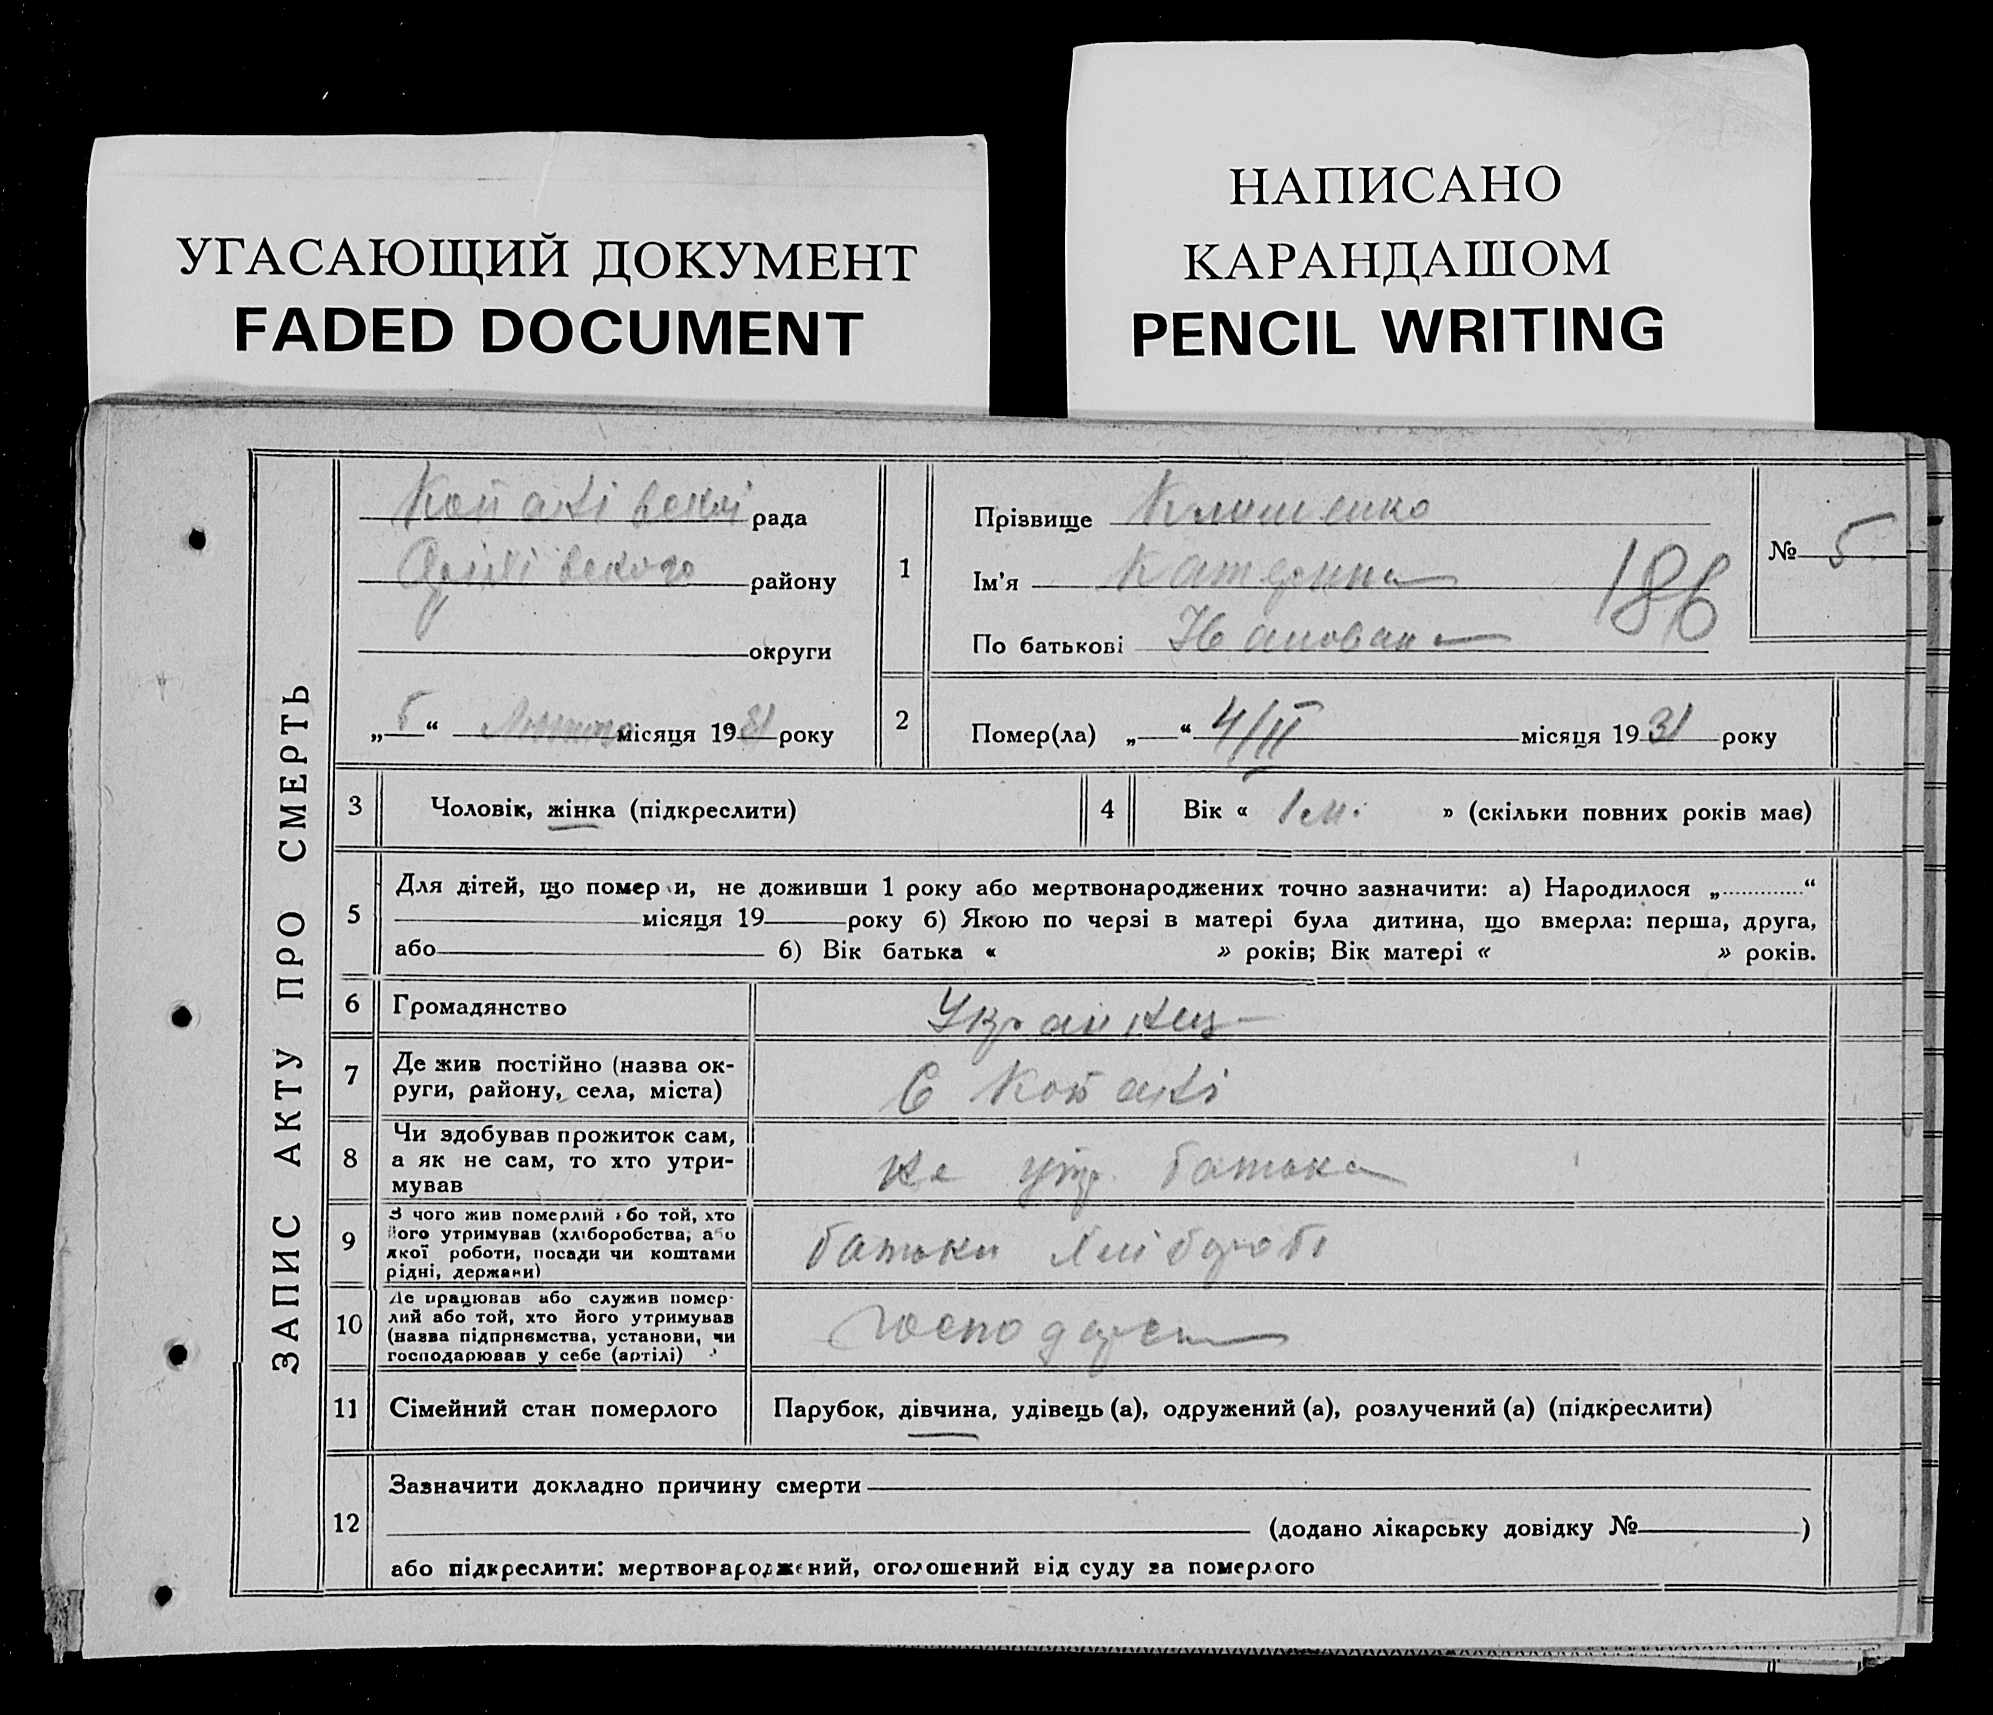 УГАСАЮЩИЙ ДОКУМЕНТ
FADED DOCUMENT
НАПИСАНО
КАРАНДАШОМ
PENCIL WRITING
ЗАПИС АКТУ ПРО СМЕРТЬ
рада
району
округи
„ 5 “ Лютого місяця 1931 року
1
Прізвище
Ім'я Катерина
По батькові
186
№ 5
2
Помер(ла) „ “ 4/II місяця 1931 року
3 Чоловік, жінка (підкреслити)
4 Вік « 1 м. » (скільки повних років має)
5 Для дітей, що померли, не доживши 1 року або мертвонароджених точно зазначити: а) Народилося „ “
місяця 19 року б) Якою по черзі в матері була дитина, що вмерла: перша, друга,
або б) Вік батька « » років; Вік матері « » років.
6 Громадянство
7 Де жив постійно (назва ок-
руги, району, села, міста)
С Копачі
8 Чи здобував прожиток сам,
а як не сам, то хто утри-
мував
Не утр. батька
9 З чого жив померлий або той, хто
його утримував (хліборобства, або
якої роботи, посади чи коштами
рідні, держави)
батьки Хлібороб
10 Де працював або служив помер-
лий або той, хто його утримував
(назва підприємства, установи, чи
господарював у себе (артілі)
11 Сімейний стан померлого Парубок, дівчина, удівець (а), одружений (а), розлучений (а) (підкреслити)
12 Зазначити докладно причину смерти
(додано лікарську довідку № )
або підкреслити: мертвонароджений, оголошений від суду за померлого